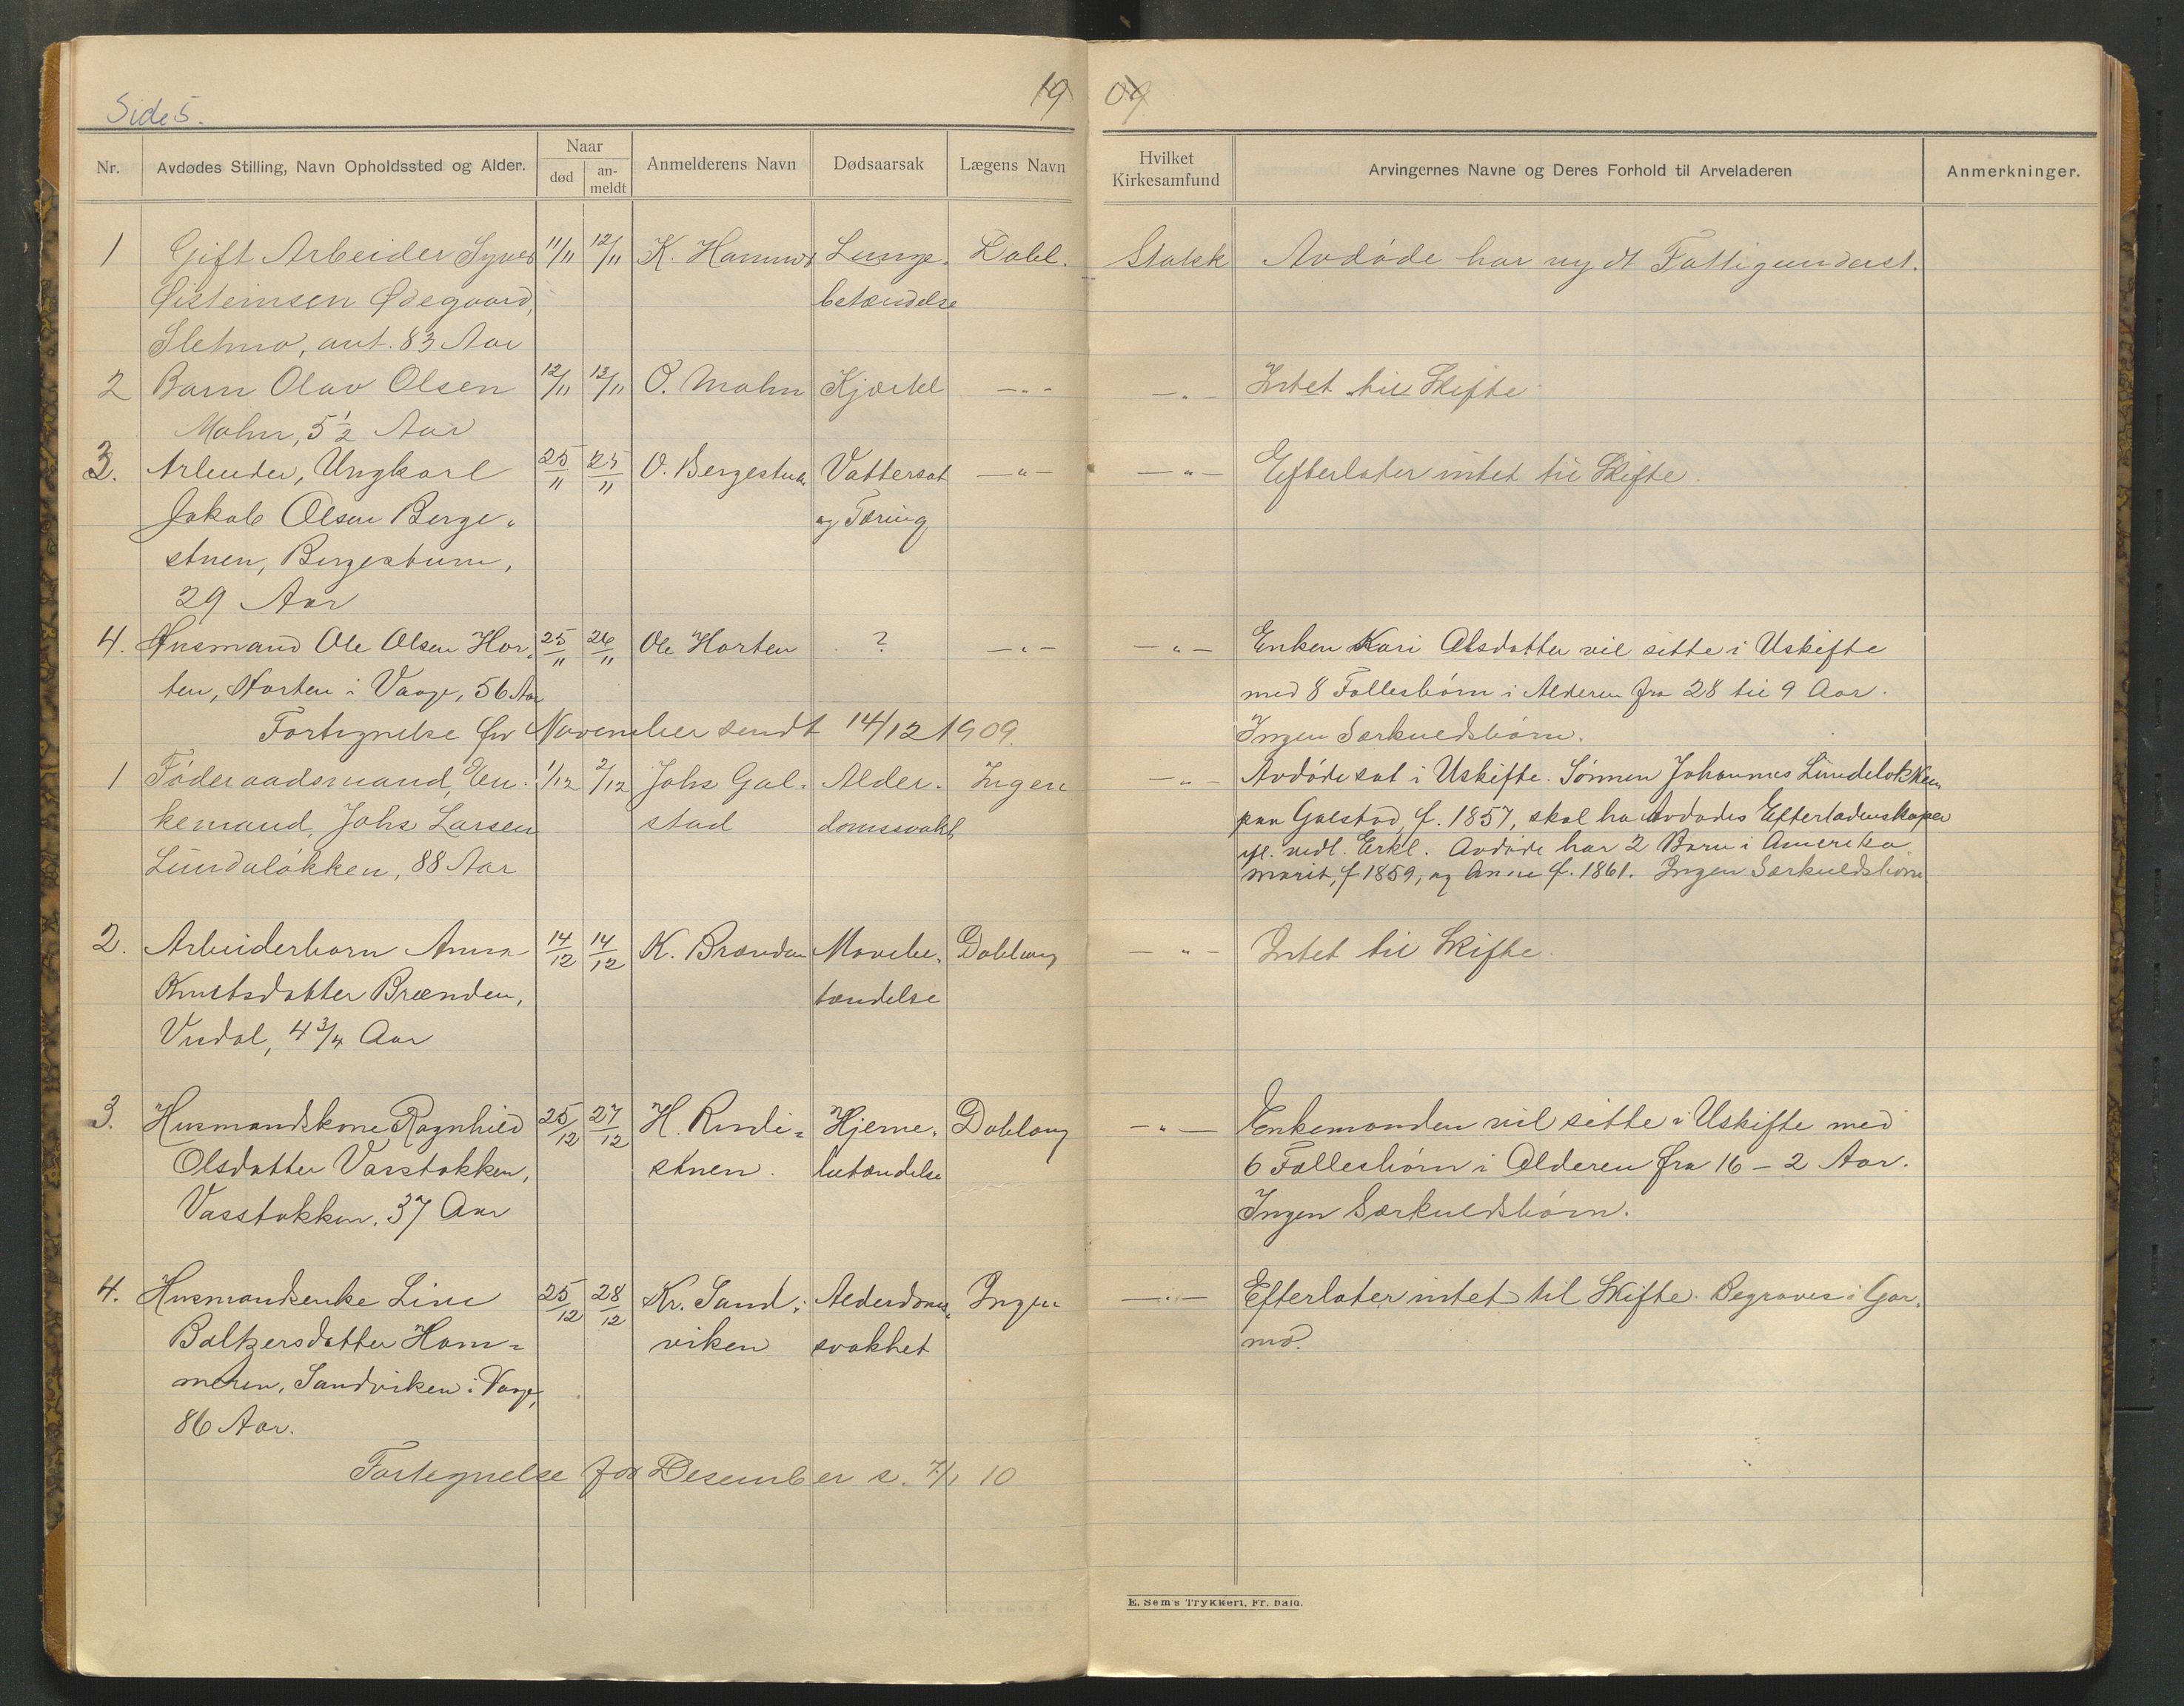 Side 5.
19 09
Nr.
Avdødes Stilling, Navn Opholdssted og Alder.
Naar
død
an-
meldt
Anmelderens Navn
Dødsaarsak
Lægens Navn
Hvilket
Kirkesamfund
Arvingernes Navne og Deres Forhold til Arveladeren
Anmerkninger.
1 Gift Arbeider Syver 11/11 12/11 K. Hammer Lunge- Dahl. Statsk Avdøde har nydt Fattigunderst.
Øisteinsen Ødegaard, betændelse
Sletmo, ant. 83 Aar
2 Barn Olav Olsen 12/11 13/11 O. Mohn Kjertel —〃— —〃— Intet til Skifte
Mohn, 5½ Aar
3. Arbeider, Ungkarl 25/11 25/11 O. Bergestuen Vattersot —〃— —〃— Efterlater intet til Skifte.
Jakob Olsen Berge- og Tæring
stuen, Bergestuen,
29 Aar
4. Husmand Ole Olsen Hor- 25/11 26/11 Ole Horten ? —〃— —〃— Enken Kari Olsdatter vil sitte i Uskifte
ten, Horten i Vaage, 56 Aar med 8 Fællesbørn i Alderen fra 28 til 9 Aar.
Fortegnelse for November sendt 14/12 1909. Ingen Særkuldsbørn.
1 Føderaadsmand, En- 1/12 2/12 Johs Gal- Alder- Ingen —〃— Avdøde sat i Uskifte. Sønnen Johannes Lundeløkken
kemand, Johs Larsen stad domssvakh. paa Galstad, f. 1857, skal ha Avdødes Efterladenskaper
Lundeløkken, 88 Aar ifl. vedl. Erkl. Avdøde har 2 Børn i Amerika
Marit, f 1859, og Anne f. 1861. Ingen Særkuldsbørn
2. Arbeiderbarn Anna 14/12 14/12 K. Brænden Mavebe- Dahl —〃— Intet til Skifte.
Knutsdatter Brænden, tændelse
4 3/4 Aar
3. Husmandskone Ragnhild 25/12 27/12 H. Rindi- Hjerne- Dahl —〃— Enkemanden vil sitte i Uskifte med
Olsdatter Vasstokken, stuen. betændelse 6 Fællesbørn i Alderen fra 16 – 2 Aar.
Vasstokken, 37 Aar Ingen Særkuldsbørn.
4. Husmandsenke Line 25/12 28/12 Kr. Sand- Alderdoms- Ingen —〃— Efterlater intet til Skifte. Begraves i Gar-
Baltzersdatter Ham- viken svakhet mo.
meren, Sandviken i Vaage,
86 Aar.
Fortegnelse for Desember s. 7/1 10
E. Sem's Trykkeri, Fr. hald.